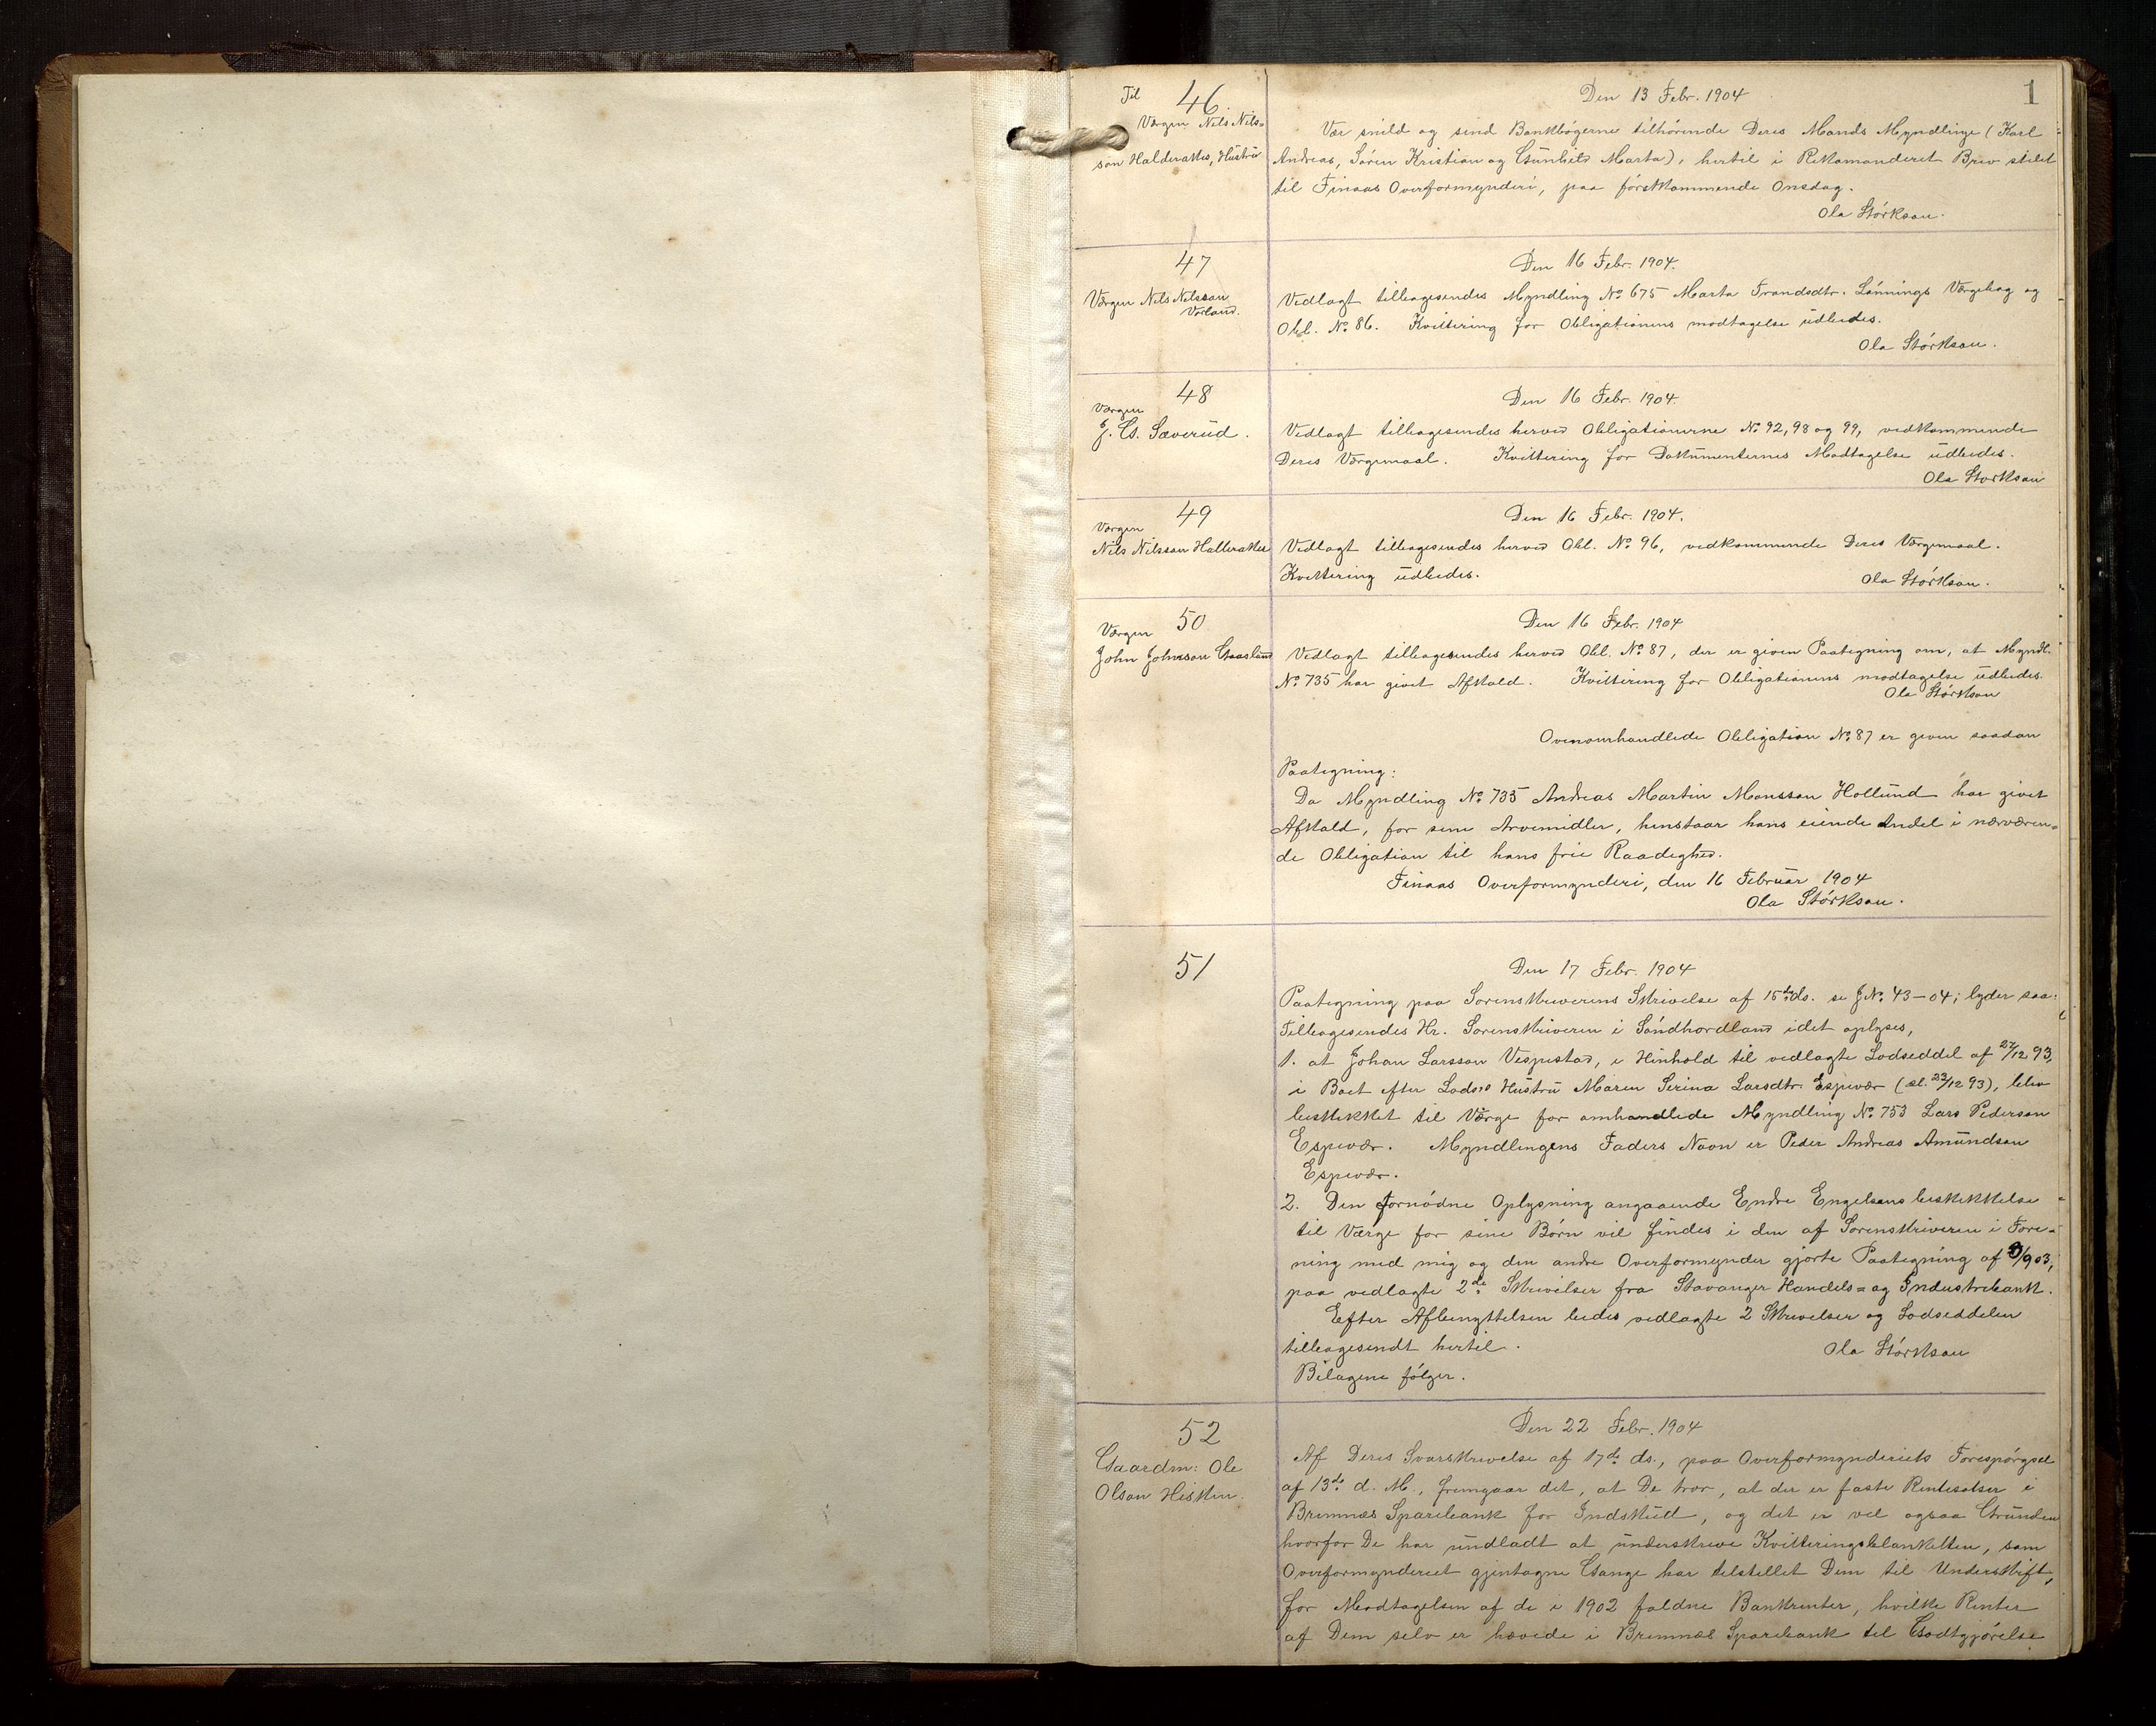 1
Til 46
Værgen Nils Nils-
son Halderakers, Hustru
Den 13 Febr. 1904
Vær snild og send Bankbøgerne tilhørende Deres Mands Myndlinge (Karl
Andreas, Søren Kristian og Gunhild Marta), hertil i Rekomanderet Brev stilet
til Finaas Overformynderi, paa førstkommende Onsdag.
Ola Størkson.
47
Værgen Nils Nilsson
Vorland.
Den 16 Febr. 1904.
Vedlagt tilbagesendes Myndling No 675 Marta Trondsdtr. Lønnings Værgebog og
Obl. No 86. Kvittering for Obligationens modtagelse udbedes.
Ola Størkson.
48
Værgen
J. G. Sæverud.
Den 16 Febr. 1904.
Vedlagt tilbagesendes herved Obligationerne No 92, 98 og 99, vedkommende
Deres Værgemaal. Kvittering for Dokumenternes Modtagelse udbedes.
Ola Størkson
49
Værgen
Nils Nilsson Halleraker
Den 16 Febr. 1904.
Vedlagt tilbagesendes herved Obl. No 96, vedkommende Deres Værgemaal.
Kvittering udbedes.
Ola Størkson.
50
Værgen
John Johnson Gaasland
Den 16 Febr. 1904
Vedlagt tilbagesendes herved Obl. No 87, der er given Paategning om, at Myndl.
No 735 har givet Afkald. Kvittering for Obligationens modtagelse udbedes.
Ola Størkson
Ovenomhandlede Obligation No 87 er given saadan
Paategning:
Da Myndling No 735 Andreas Martin Monsson Hollund har givet
Afkald, for sine Arvemidler, henstaar hans eiende Andel i nærværen-
de Obligation til hans frie Raadighed.
Finaas Overformynderi, den 16 Februar 1904
Ola Størkson.
51
Den 17 Febr. 1904
Paategning paa Sorenskriverens Skrivelse af 15de ds. se J No. 43-04; lyder saa:
Tilbagesendes Hr. Sorenskriveren i Søndhordland idet oplyses,
1. at Johan Larsson Vespestad, i Henhold til vedlagte Lodseddel af 27/12 93,
i Boet efter Lods's Hustru Maren Serina Larsdtr. Espevær (sl. 23/12 93), blev
beskikket til Værge for omhandlede Myndling No. 753 Lars Pederson
Espevær. Myndlingens Faders Navn er Peder Andreas Amundson
Espevær.
2. Den fornødne Oplysning angaaende Endre Engelsens beskikkelse
til Værge for sine Børn vil findes i den af Sorenskriveren i Fore-
ning med mig og den andre Overformynder gjorte Paategning af 9/9 03,
paa vedlagte 2de Skrivelser fra Stavanger Handels= og Industribank.
Efter Afbenyttelsen bedes vedlagte 2 Skrivelser og Lodseddelen
tilbagesendt hertil.
Ola Størkson
Bilagene følger.
52
Gaardm: Ole
Olson Hisken.
Den 22 Febr. 1904
Af Deres Svarskrivelse af 17de ds., paa Overformynderiets Forespørgsel
af 13de d. M., fremgaar det, at De tror, at der er faste Rentesatser i
Bremnæs Sparebank for Indskud, og det er vel ogsaa Grunden
hvorfor De har undladt at underskrive Kvitteringsblanketten, som
Overformynderiet gjentagne Gange har tilstillet Dem til Underskrift,
for Modtagelsen af de i 1902 faldne Bankrenter, hvilke Renter
af Dem selv er hævede i Bremnæs Sparebank til Godtgjørelse